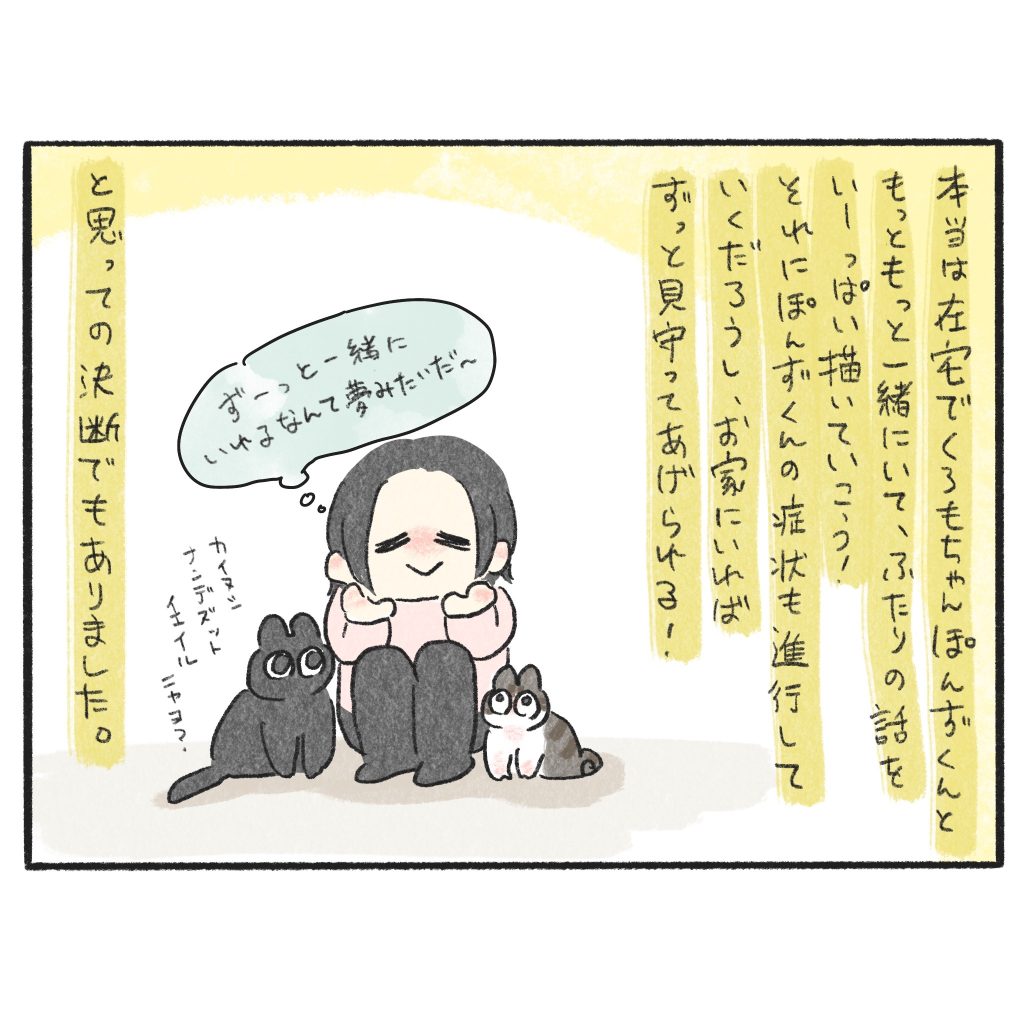 本当は在宅でくろもちゃんぽんずくんと
もっともっと一緒にいて、ふたりの話を
いーっぱい描いていこう!
それにぽんずくんの症状も進行して
いくだろうし、お家にいれば
ずっと見守ってあげられる!
ずーっと一緒に
いれるなんて夢みたいだ〜
カイヌシ
ナンデズット
イエイル
ニャヨ?
と思っての決断でもありました。